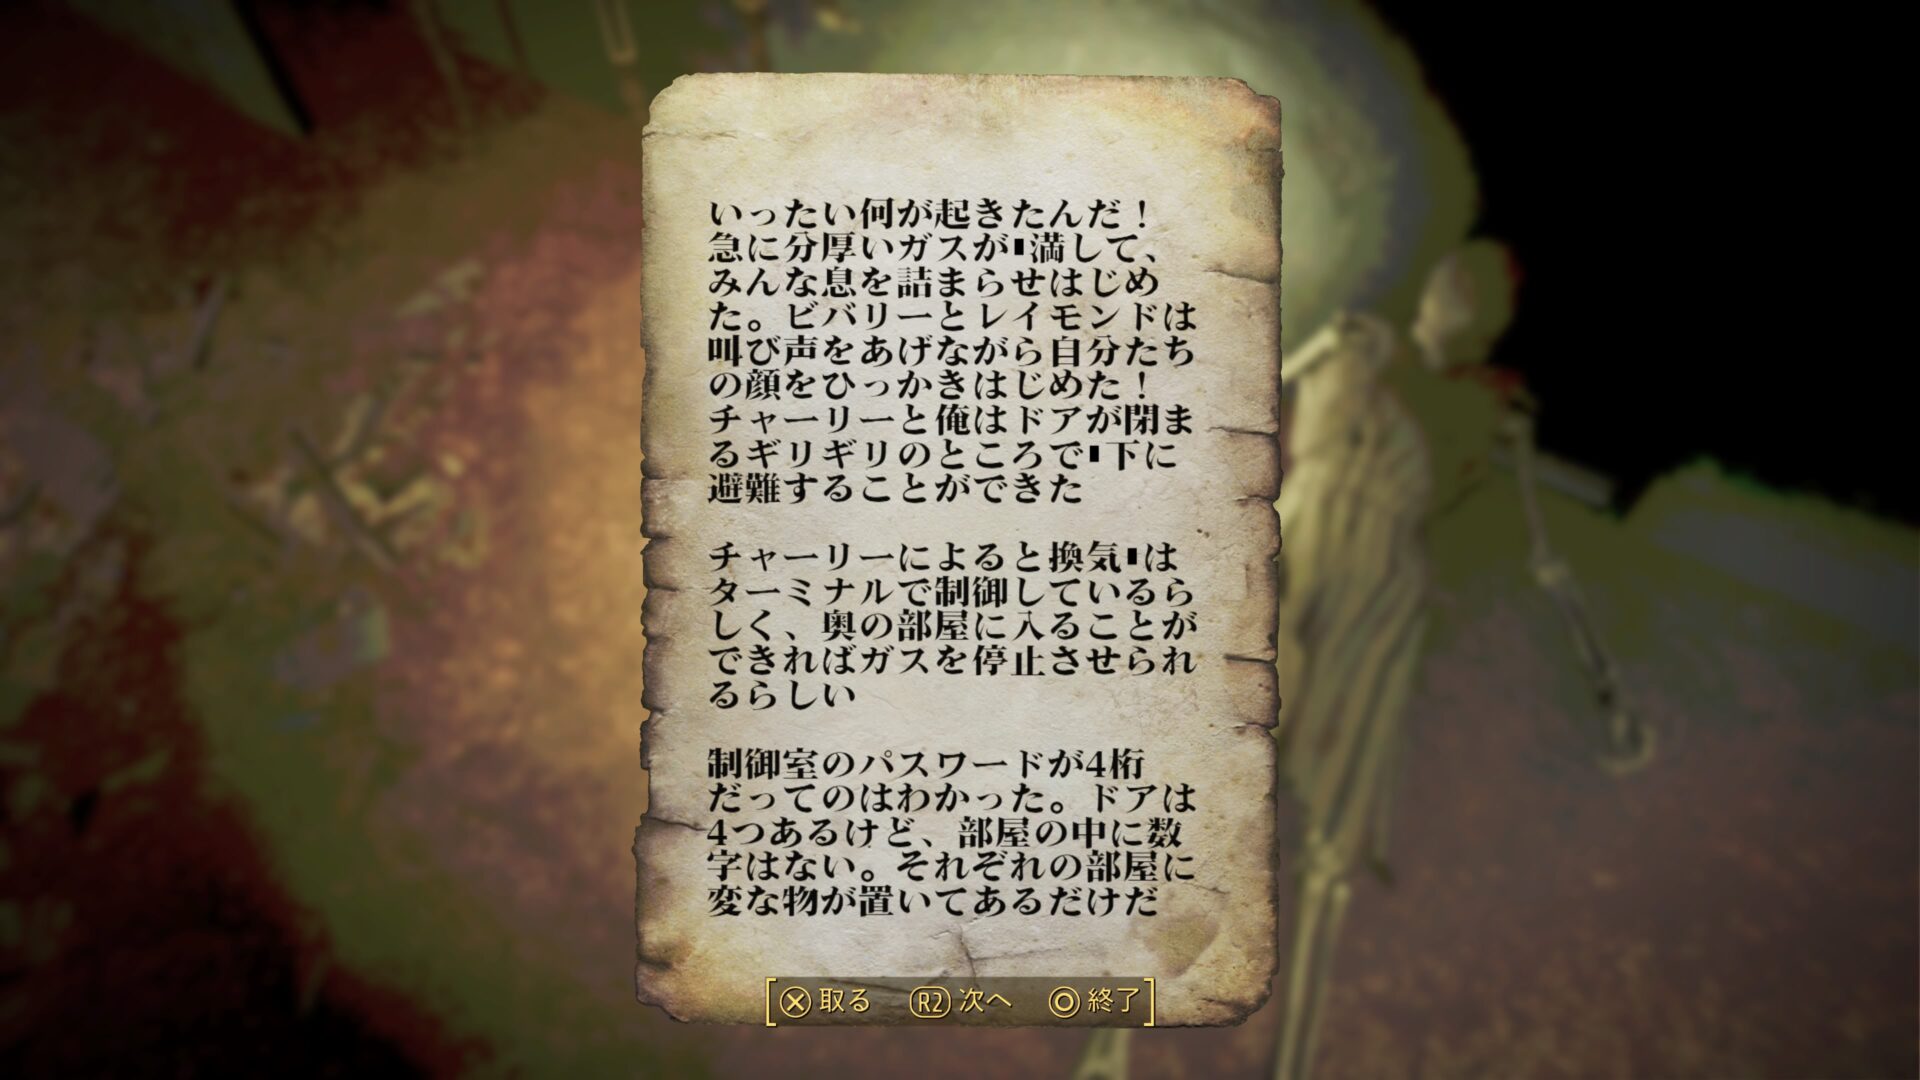 いったい何が起きたんだ！
急に分厚いガスが▮満して、
みんな息を詰まらせはじめ
た。ビバリーとレイモンドは
叫び声をあげながら自分たち
の顔をひっかきはじめた！
チャーリーと俺はドアが閉ま
るギリギリのところで▮下に
避難することができた
チャーリーによると換気▮は
ターミナルで制御しているら
しく、奥の部屋に入ることが
できればガスを停止させられ
るらしい
制御室のパスワードが4桁
だってのはわかった。ドアは
4つあるけど、部屋の中に数
字はない。それぞれの部屋に
変な物が置いてあるだけだ
[⊗取る R2次へ ◎終了]